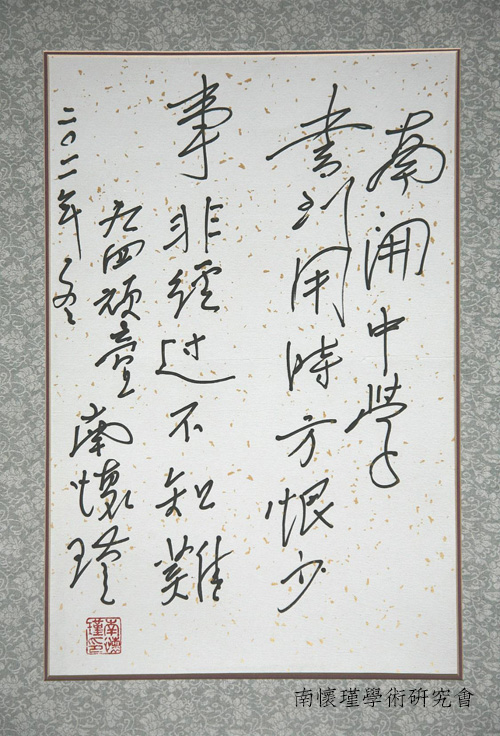 南開中學
書到用時方恨少
事非經过不知難
九四頑童 南懷瑾
二〇一一年冬
南懷瑾印
南懷瑾學術研究會